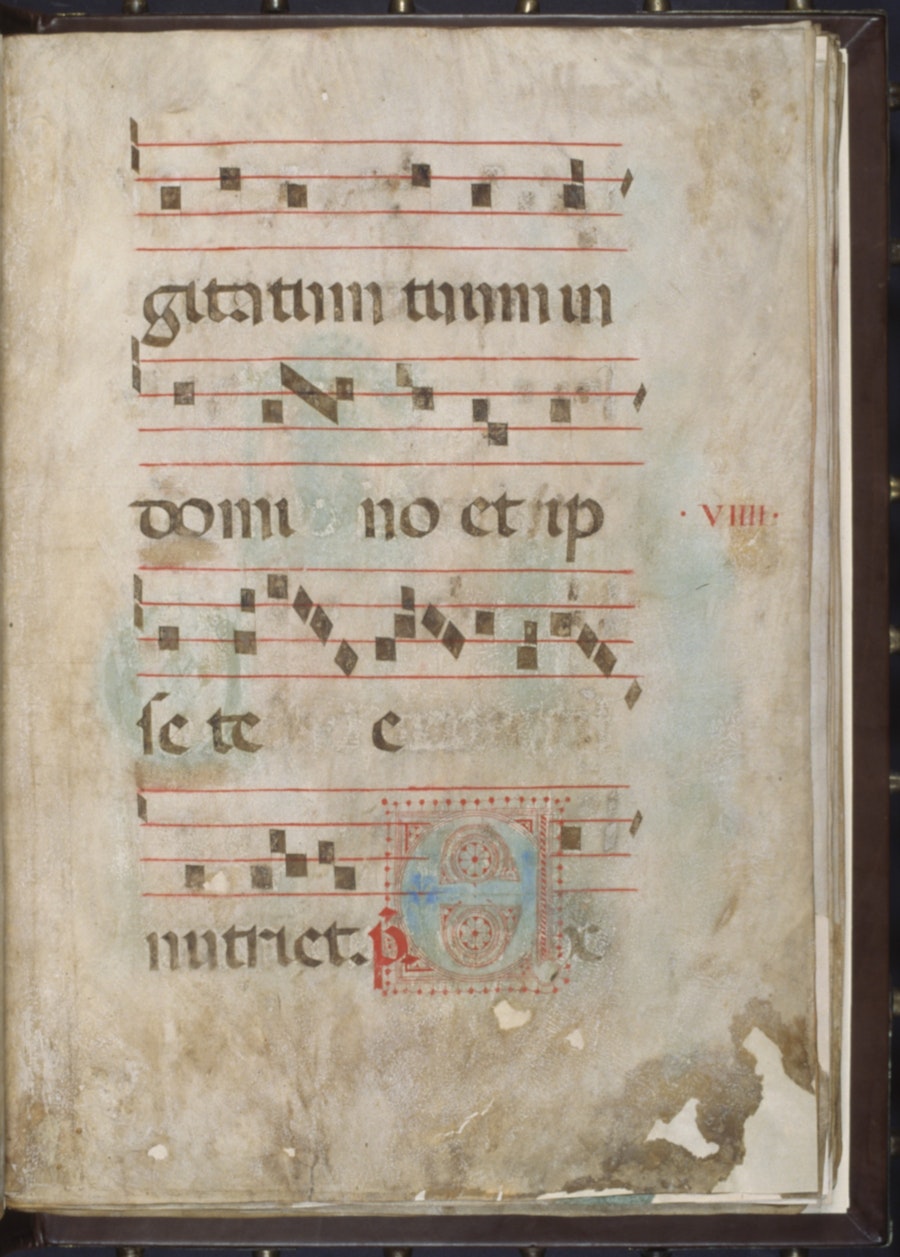 gitatum tuum in
domi no et ip
· VIIII ·
se te e
nutriet. p. Ex